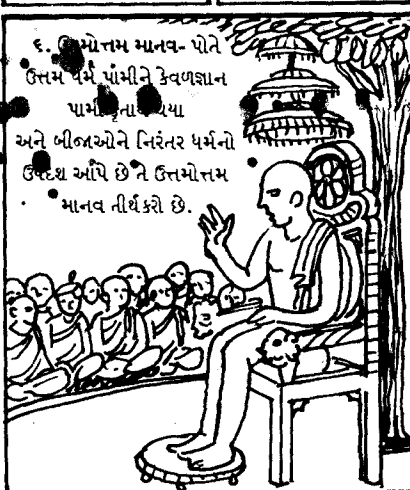 ૬. ઉત્તમોત્તમ માનવ- પોતે
ઉત્તમ ધર્મ પામીને કેવળજ્ઞાન
પામી કૃતાર્થ થયા
અને બીજાઓને નિરંતર ધર્મનો
ઉપદેશ આપે છે તે ઉત્તમોત્તમ
માનવ તીર્થંકરો છે.